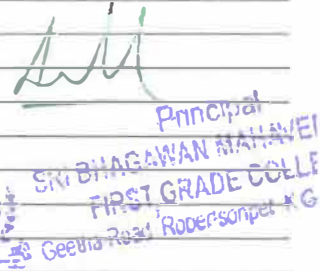 Principal
SRI BHAGAWAN MAHAVE
FIRST GRADE COLLE
Geetha Road Robertsonpet K G